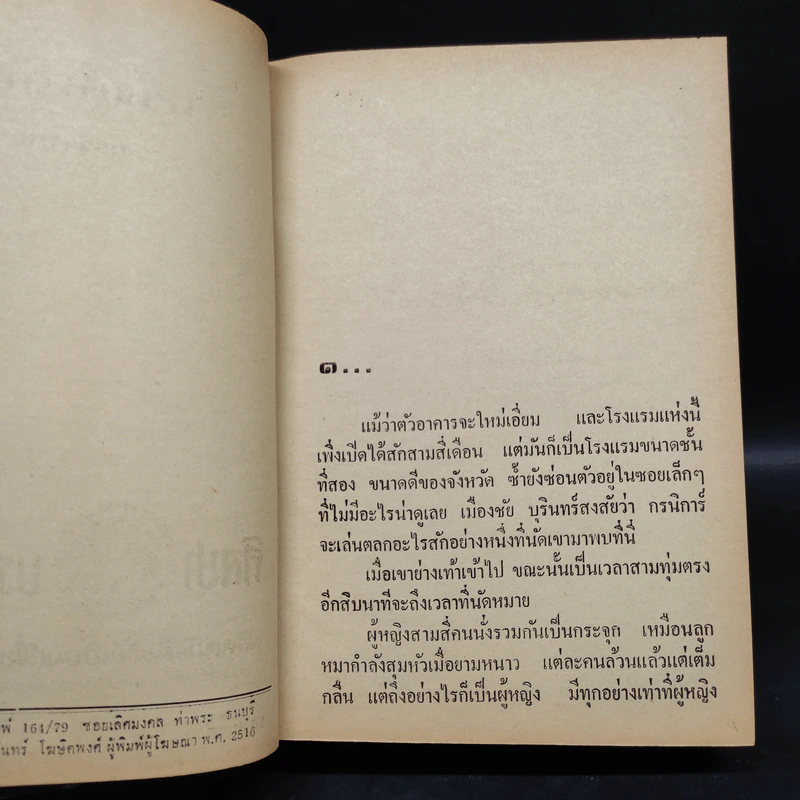 พ์ 164/79 ซอยเลิศมงคล ท่าพระ ธนบุรี
นทร์ โฆษิตพงศ์ ผู้พิมพ์ผู้โฆษณา พ.ศ. 2516
๑...
แม้ว่าตัวอาคารจะใหม่เอี่ยม และโรงแรมแห่งนี้
เพิ่งเปิดได้สักสามสี่เดือน แต่มันก็เป็นโรงแรมขนาดชั้น
ที่สอง ขนาดดีของจังหวัด ซ้ำยังซ่อนตัวอยู่ในซอยเล็กๆ
ที่ไม่มีอะไรน่าดูเลย เมืองชัย บุรินทร์สงสัยว่า กรนิการ์
จะเล่นตลกอะไรสักอย่างหนึ่งที่นัดเขามาพบที่นี่
เมื่อเขาย่างเท้าเข้าไป ขณะนั้นเป็นเวลาสามทุ่มตรง
อีกสิบนาทีจะถึงเวลาที่นัดหมาย
ผู้หญิงสามสี่คนนั่งรวมกันเป็นกระจุก เหมือนลูก
หมากำลังสุมหัวเมื่อยามหนาว แต่ละคนล้วนแล้วแต่เต็ม
กลืน แต่ถึงอย่างไรก็เป็นผู้หญิง มีทุกอย่างเท่าที่ผู้หญิง